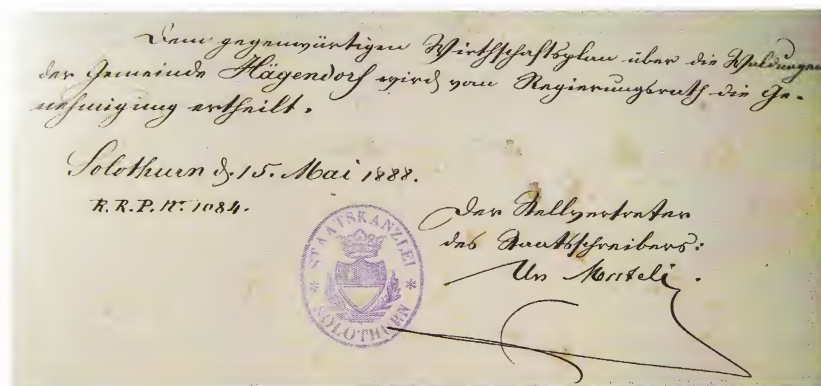 Dem gegenwärtigen Wirthschaftsplan über die Waldungen
der Gemeinde Hägendorf wird vom Regierungsrath die Ge-
nehmigung ertheilt.
Solothurn d. 15. Mai 1888.
R.R.P. No. 1084.
Der Stellvertreter
des Staatsschreibers:
STAATSKANZLEI
* SOLOTHURN *